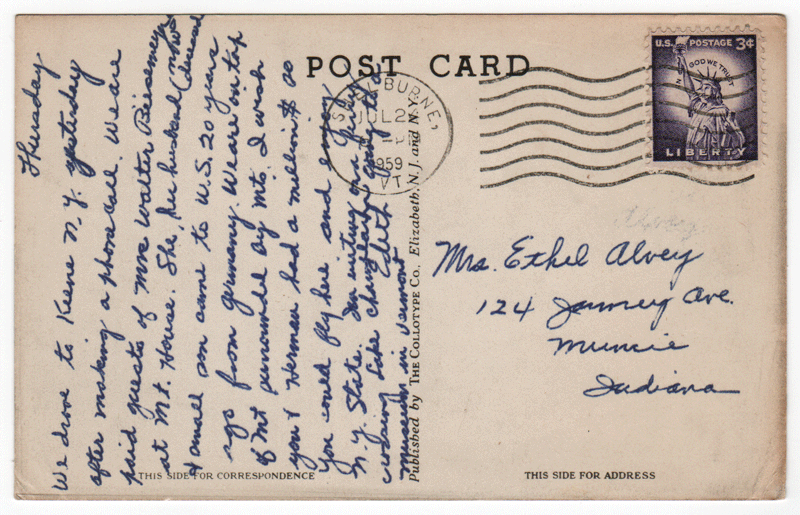 POST CARD
U.S. POSTAGE 3¢
IN GOD WE TRUST
LIBERTY
SHELBURNE,
JUL 2
1959
VT
Thursday
We drove to Keene N.Y. yesterday
after making a phone call. We are
paid guests of Mrs Walter Biesemeyer
at Mt. House. She, her husband (now deceased)
& small son came to U.S. 20 years
ago from Germany. We are on top
of Mt surrounded by Mts. I wish
you & Herman had a million $ so
you could fly here and enjoy
N.Y. State. I'm writing on a ferry
crossing Lake Champlain going to
Edith museum in Vermont
Published by THE COLLOTYPE CO., Elizabeth, N.J. and N.Y.
Mrs. Ethel Alvey
124 Ave.
Muncie
Indiana
THIS SIDE FOR CORRESPONDENCE
THIS SIDE FOR ADDRESS